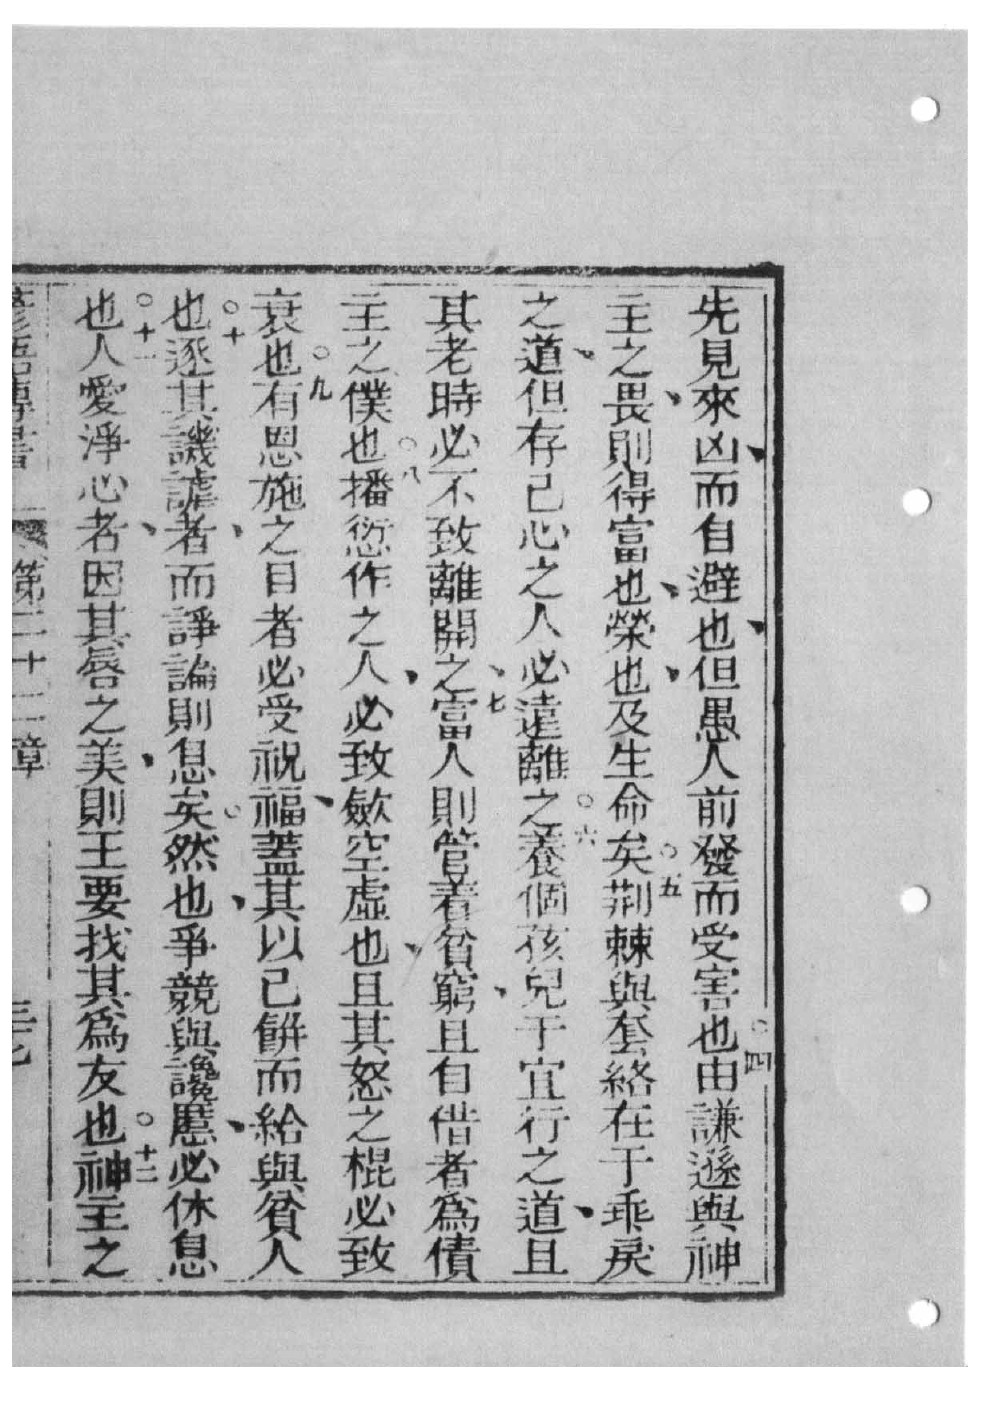 先見來凶而自避也但愚人前發而受害也○四由謙遜與神
主之畏則得富也榮也及生命矣○五荆棘與套絡在于乖戾
之道但存己心之人必遠離之○六養個孩兒于宜行之道且
其老時必不致離開之○七富人則管着貧窮且自借者爲債
主之僕也○八播愆作之人必致歛空虛也且其怒之棍必致
衰也○九有恩施之目者必受祝福蓋其以己餅而給與貧人
也○十逐其譏謔者而諍論則息矣○然也爭競與讒慝必休息
也○十一人愛淨心者因其唇之美則王要找其爲友也○十二神主之
箴語傳書 第二十二章 三七